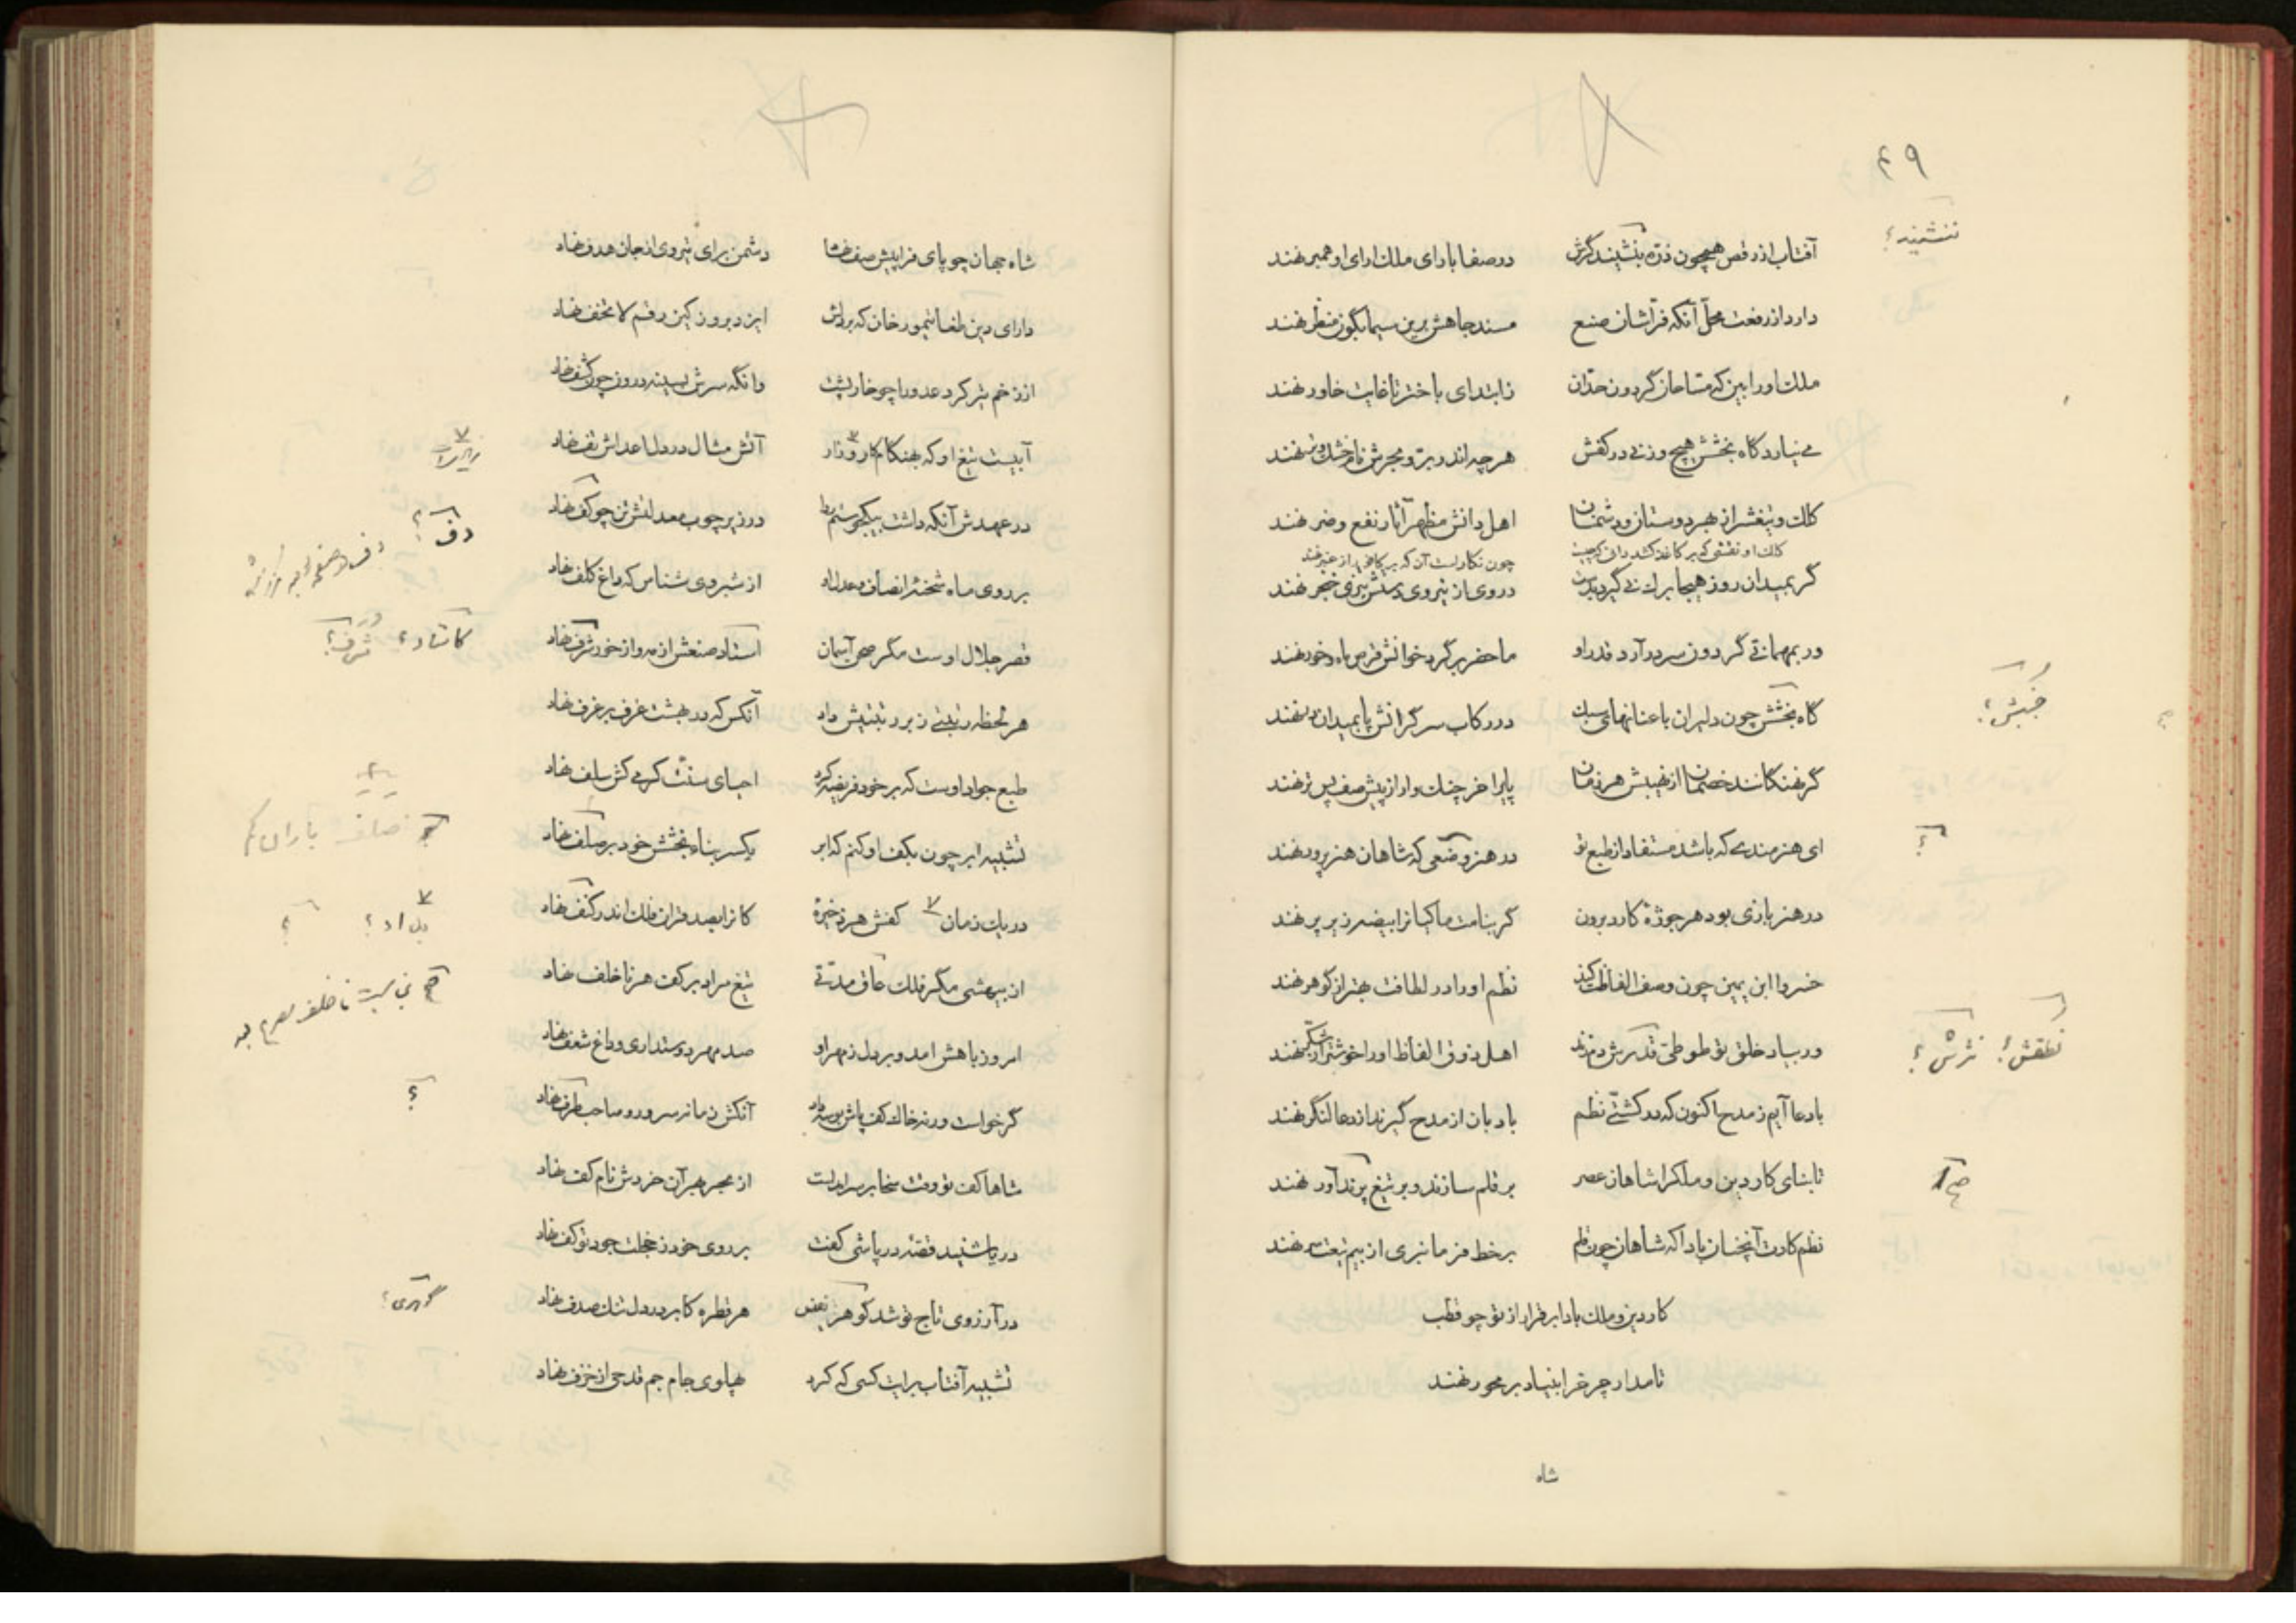 ۴۹
ننشیند؟
آفتاب از رقص همچون ذره بنشیند گرش در صفا با رای ملک آرای او همبر نهند
دارد از رفعت محل آنکه فراشان صنع مسند جاهش برین سیمابگون منظر نهند
ملک او را بین که مساحان گردون حد آن ز ابتدای باختر تا غایت خاور نهند
می نیارد گاه بخشش هیچ وزنی در کفش هر چه اندر بر و بحرش نام خشک و تر نهند
کلک و تیغش از بهر دوستان و دشمنان اهل دانش مظهر آثار نفع و ضر نهند
کلک او نقشی که بر کاغذ کشد دانی که چیست چون نگارست آن که بر کافور از عنبر نهند
گر بمیدان روز هیجا برک نی گیرد بدست در وی از نیروی دستش تیزی خجر نهند
ور بمهمانی گردون سر در آرد قدر او ما حضر بر گرد خوانش قرص ماه و خور نهند
جنبش؟
گاه بخشش چون دلیران با عنانهای سبک در رکاب سر گرانش پا بمیدان در نهند
گر نهنگانند خصمان از نهیبش هر زمان پایرا خرچنگ وار از پیش صف پس تر نهند
؟
ای هنرمندی که باشد مستفاد از طبع تو در هنر وضعی که شاهان هنر پرور نهند
در هنر بازی بود هر جوژۀ کارد برون گر بنامت ماکیانرا بیضه زیر پر نهند
خسروا ابن یمین چون وصف الفاظت کند نظم او را در لطافت بهتر از گوهر نهند
نطقش؟ نثرش؟
ور بیاد خلق تو طوطی قدسش دم زند اهل ذوق الفاظ او را خوشتر از شکر نهند
با دعا آیم ز مدح اکنون که در کشتی نظم بادبان از مدح گیرند از دعا لنگر نهند
تا بنای کار دین و ملکرا شاهان عصر بر قلم سازند و بر تیغ پرندآور نهند
نظم کارت آنچنان بادا که شاهان چون قلم بر خط فرمانبری از بیم تیغت سر نهند
کار دین و ملک بادا بر قرار از تو چو قطب
تا مدار چرخرا بنیاد بر محور نهند
شاه
شاه جهان چو پای فرا پیش صف نهاد دشمن برای تیر وی از جان هدف نهاد
دارای دین طغا تیمور خان که بر دلش ایزد بروز کین رقم لا تخف نهاد
از زخم تیر کرد عدو را چو خارپشت وانگه سرش بسینه درون چون کشف نهاد
آبیست تیغ او که بهنگام کار و زار آتش مثال در دل اعداش تف نهاد
در عهدش آنکه داشت بیکجو ستم روا در زیر چوب معدلتش تن چو کف نهاد
دف؟
بر روی ماه شحنۀ انصاف و عدل او از شبروی شناس که داغ کلف نهاد
قصر جلال اوست مگر صحن آسمان استاد صنعش از مه و از خور شرف نهاد
کاستاد؟ شرف؟
هر لحظه رتبتی زبر رتبتیش داد آنکس که در بهشت غرف بر غرف نهاد
طبع جواد اوست که بر خود فریضه کرد احیای سنت کرمی کش سلف نهاد
تشبیه ابر چون بکف او کنم که ابر یکسر بناء بخشش خود بر صلف نهاد
در یک زمان کفش هر ذخیرۀ کانرا بصد قران فلک اندر کنف نهاد
بداد؟ ؟
از بیهشی مگر فلک عاق مدتی تیغ مراد بر کف هر ناخلف نهاد
امروز با هش آمد و بر دل ز مهر او صد مهر دوستداری و داغ شعف نهاد
؟
گر خواست ورنه خاک کف پاش بوسه داد آنکش زمانه سرور و صاحب طرف نهاد
شاها کف تو وقت سخا بر سر آمدست از بحر بهر آن خردش نام کف نهاد
دریا شنید قصۀ در پاشی کفت بر روی خود ز خجلت جود تو کف نهاد
در آرزوی تاج تو شد گوهر نفیس هر قطره کابر در دل تنک صدف نهاد
گوهری؟
تشبیه آفتاب برایت کسی که کرد پهلوی جام جم قدحی از خزف نهاد